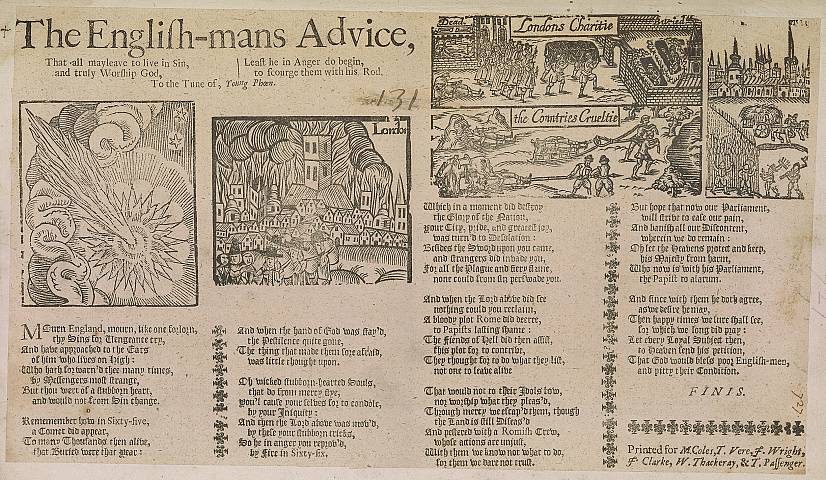 The Engliſh-mans Advice,
That all may leave to live in Sin,
and truly Worſhip God,
Leaſt he in Anger do begin,
to ſcourge them with his Rod.
To the Tune of, Young Phœn.
131
London
Dead.
Londons Charitie
Buriall
the Countries Crueltie
MOurn England, mourn, like one forlorn,
thy Sins for Vengeance cry,
And have approached to the Ears
of him who lives on High:
Who hath forwarn'd thee many times,
by Meſſengers moſt ſtrange,
But thou wert of a ſtubborn heart,
and would not from Sin change.
Rememember how in Sixty-five,
a Comet did appear,
To many Thouſands then alive,
that Buried were that year:
And when the hand of God was ſtay'd,
the Peſtilence quite gone,
The thing that made them ſore afraid,
was little thought upon.
Oh wicked ſtubborn-hearted Souls,
that do from mercy flye,
You'l cauſe your ſelves for to condole,
by your Iniquity:
And then the Lord above was mov'd,
by theſe your ſtubborn tricks,
So he in anger you reprov'd,
by Fire in Sixty-ſix,
Which in a moment did deſtroy
the Glory of the Nation,
Your City, pride, and greateſt joy,
was turn'd to Deſolation:
Beſides the Sword upon you came,
and ſtrangers did invade you,
For all the Plague and fiery flame,
none could from ſin perſwade you.
And when the Lord above did ſee
nothing could you reclaim,
A bloody plot Rome did decree,
to Papiſts laſting ſhame:
The Fiends of Hell did then aſſiſt,
this plot for to contrive,
They thought for to do what they liſt,
not one to leave alive
That would not to their Idols bow,
nor worſhip what they pleas'd,
Through mercy we eſcap'd them, though
the Land is ſtill Diſeas'd
And peſtered with a Romiſh Crew,
whoſe actions are unjuſt,
With them we know not what to do,
for them we dare not truſt.
But hope that now our Parliament,
will ſtrive to eaſe our pain,
And baniſh all our Diſcontent,
wherein we do remain:
Oh let the Heavens protect and keep,
his Majeſty from harm,
Who now is with his Parliament,
the Papiſt to alarum.
And ſince with them he doth agree,
as we deſire he may,
Then happy times we ſure ſhall ſee,
for which we long did pray:
Let every Loyal Subject then,
to Heaven ſend his petition,
That God would bleſs poor Engliſh-men,
and pitty their Condition.
FINIS.
Printed for M. Coles, T. Vere, J. Wright,
J. Clarke, W. Thackeray, & T. Paſſenger.